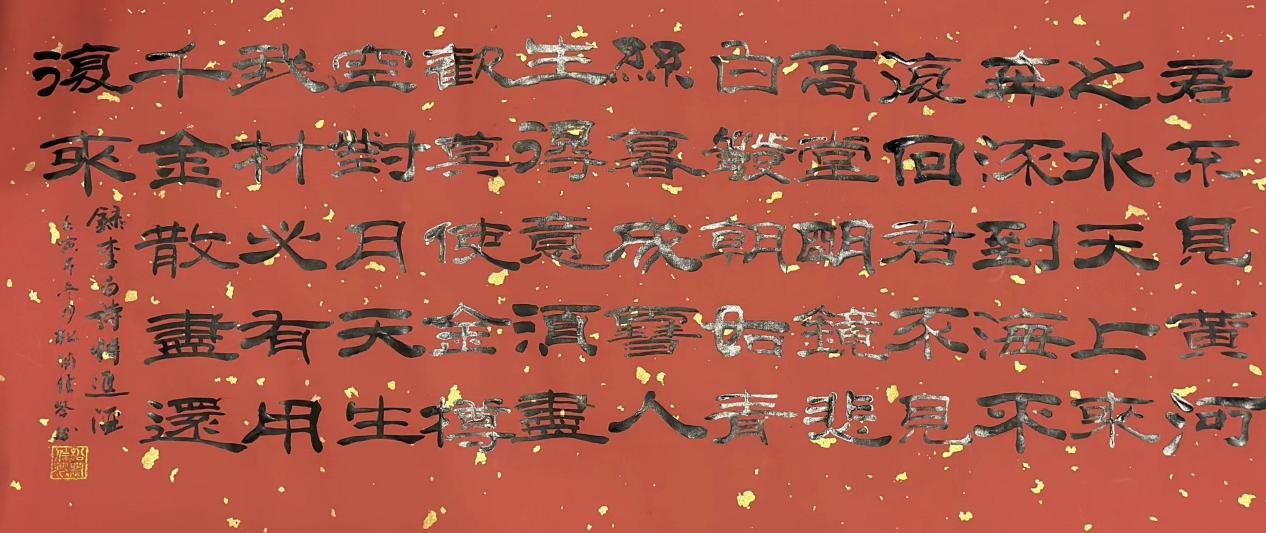 君不見黃河
之水天上來
奔流到海不
復回君不見
高堂明鏡悲
白髮朝如青
絲暮成雪人
生得意須盡
歡莫使金樽
空對月天生
我材必有用
千金散盡還
復來
錄李白詩將進酒
壬寅年冬月